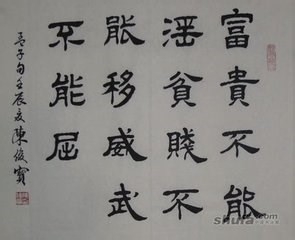 富貴不能
滛貧賤不
能移威武
不能屈
孟子句壬辰夏陳俊寶